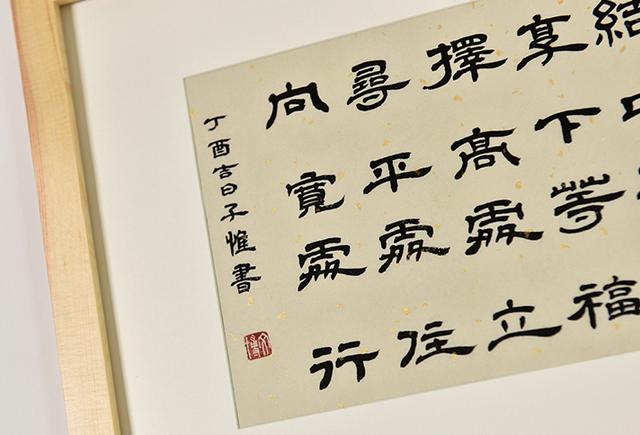 結
享下等福
擇高處立
尋平處住
向寬處行
丁酉吉日子惟書